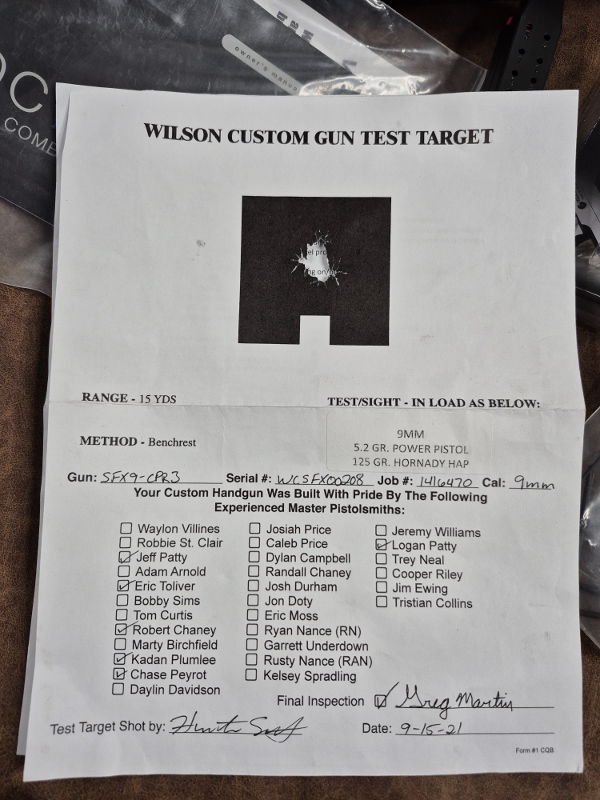 OC
COMB
owner's manual
WILSON CUSTOM GUN TEST TARGET
el pro
ng on/
RANGE - 15 YDS
TEST/SIGHT - IN LOAD AS BELOW:
METHOD - Benchrest
9MM
5.2 GR. POWER PISTOL
125 GR. HORNADY HAP
Gun: SFX9-CPR3 Serial #: WCSFX00208 Job #: 1416470 Cal: 9mm
Your Custom Handgun Was Built With Pride By The Following
Experienced Master Pistolsmiths:
Waylon Villines
Robbie St. Clair
Jeff Patty
Adam Arnold
Eric Toliver
Bobby Sims
Tom Curtis
Robert Chaney
Marty Birchfield
Kadan Plumlee
Chase Peyrot
Daylin Davidson
Josiah Price
Caleb Price
Dylan Campbell
Randall Chaney
Josh Durham
Jon Doty
Eric Moss
Ryan Nance (RN)
Garrett Underdown
Rusty Nance (RAN)
Kelsey Spradling
Jeremy Williams
Logan Patty
Trey Neal
Cooper Riley
Jim Ewing
Tristian Collins
Final Inspection Greg Martin
Test Target Shot by: Hunter
Date: 9-15-21
Form #1 CQB